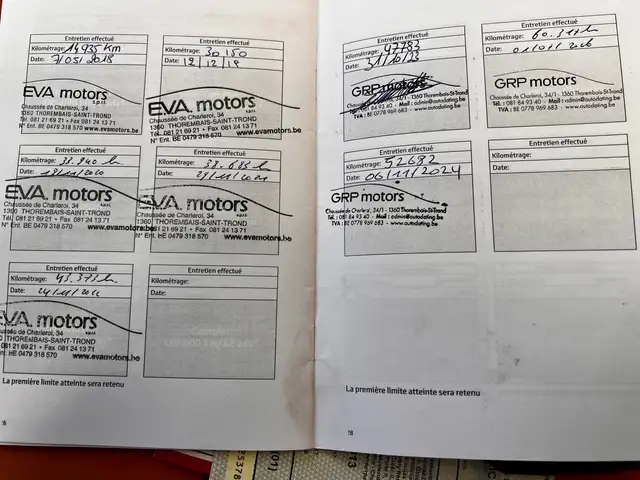 Entretien effectué
Kilométrage: 14935 Km
Date: 7/05/2018
EVA motors s.p.r.l.
Chaussée de Charleroi, 34
1360 THOREMBAIS-SAINT-TROND
Tél. 081 21 69 21 • Fax 081 24 13 71
N° Ent. BE 0479 318 570 www.evamotors.be
Entretien effectué
Kilométrage: 30 150
Date: 12/12/18
EVA motors s.p.r.l.
Chaussée de Charleroi, 34
1360 THOREMBAIS-SAINT-TROND
Tél. 081 21 69 21 • Fax 081 24 13 71
N° Ent. BE 0479 318 570 www.evamotors.be
Entretien effectué
Kilométrage:
Date:
EVA motors
Chaussée de Charleroi, 34
1360 THOREMBAIS-SAINT-TROND
Tél. 081 21 69 21 • Fax 081 24 13 71
N° Ent. BE 0479 318 570 www.evamotors.be
Entretien effectué
Kilométrage:
Date:
EVA motors
Chaussée de Charleroi, 34
1360 THOREMBAIS-SAINT-TROND
Tél. 081 21 69 21 • Fax 081 24 13 71
N° Ent. BE 0479 318 570 www.evamotors.be
Entretien effectué
Kilométrage: 43.373
Date:
EVA motors
Chaussée de Charleroi, 34
THOREMBAIS-SAINT-TROND
081 21 69 21 • Fax 081 24 13 71
BE 0479 318 570 www.evamotors.be
Entretien effectué
Kilométrage:
Date:
La première limite atteinte sera retenu
Entretien effectué
Kilométrage: 47783
Date: 31/10/23
GRP motors
34/1 - 1360 Thorembais-St-Trond
Tél.: 081 84 93 40 - Mail: admin@autodating.be
TVA: BE 0778 969 683 - www.autodating.be
Entretien effectué
Kilométrage:
Date:
GRP motors
Chaussée de Charleroi, 34/1 - 1360 Thorembais-St-Trond
Tél.: 081 84 93 40 - Mail: admin@autodating.be
TVA: BE 0778 969 683 - www.autodating.be
Entretien effectué
Kilométrage: 52692
Date: 06/11/2024
GRP motors
Chaussée de Charleroi, 34/1 - 1360 Thorembais-St-Trond
Tél.: 081 84 93 40 - Mail: admin@autodating.be
TVA: BE 0778 969 683 - www.autodating.be
Entretien effectué
Kilométrage:
Date:
La première limite atteinte sera retenu